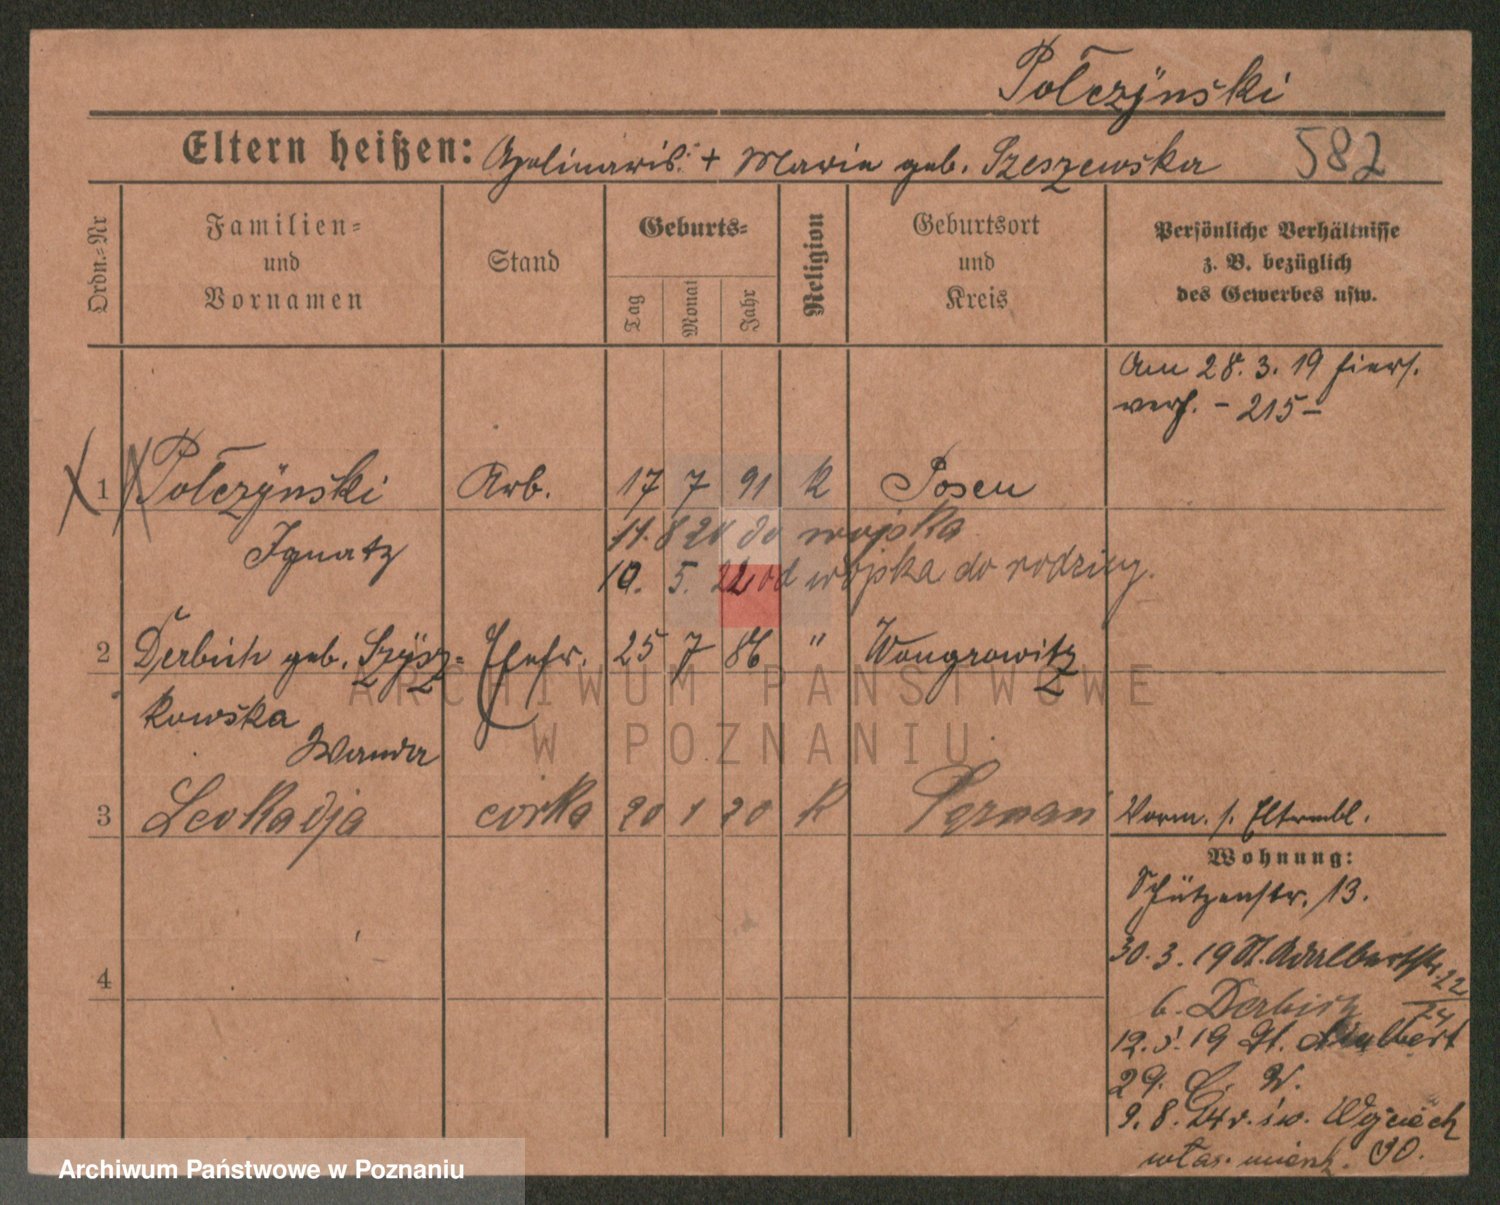 Połczÿnski
Eltern heißen: Apolinaris + Marie geb. Szeszewska 582
Ordn.-Nr
Familien- und Vornamen
Stand
Geburts-
Tag Monat Jahr
Religion
Geburtsort und Kreis
Persönliche Verhältnisse
z. B. bezüglich
des Gewerbes usw.
Am 28. 3. 19 hiers.
verh. - 215 -
1 Połczÿnski Arb. 17 7 91 K Posen
Ignatz
11. 8 20 do wojska
10. 5. 22 od wojska do rodziny.
2 Derbich geb. Szÿsz- Ehefr. 25 7 86 " Wongrowitz
kowska
Wanda
3 Leokadja córka 20 1 20 K Poznań
Vorm. s. Elternbl.
Wohnung:
Schützenstr. 13.
30. 3. 19 St. Adalbertstr. 22
b. Derbich 24
12. 5. 19 St. Adalbert
29. E. W.
9. 8. 24 r. św. Wojciech
własn. mieszk. 30.
4
ARCHIWUM PAŃSTWOWE
W POZNANIU
Archiwum Państwowe w Poznaniu